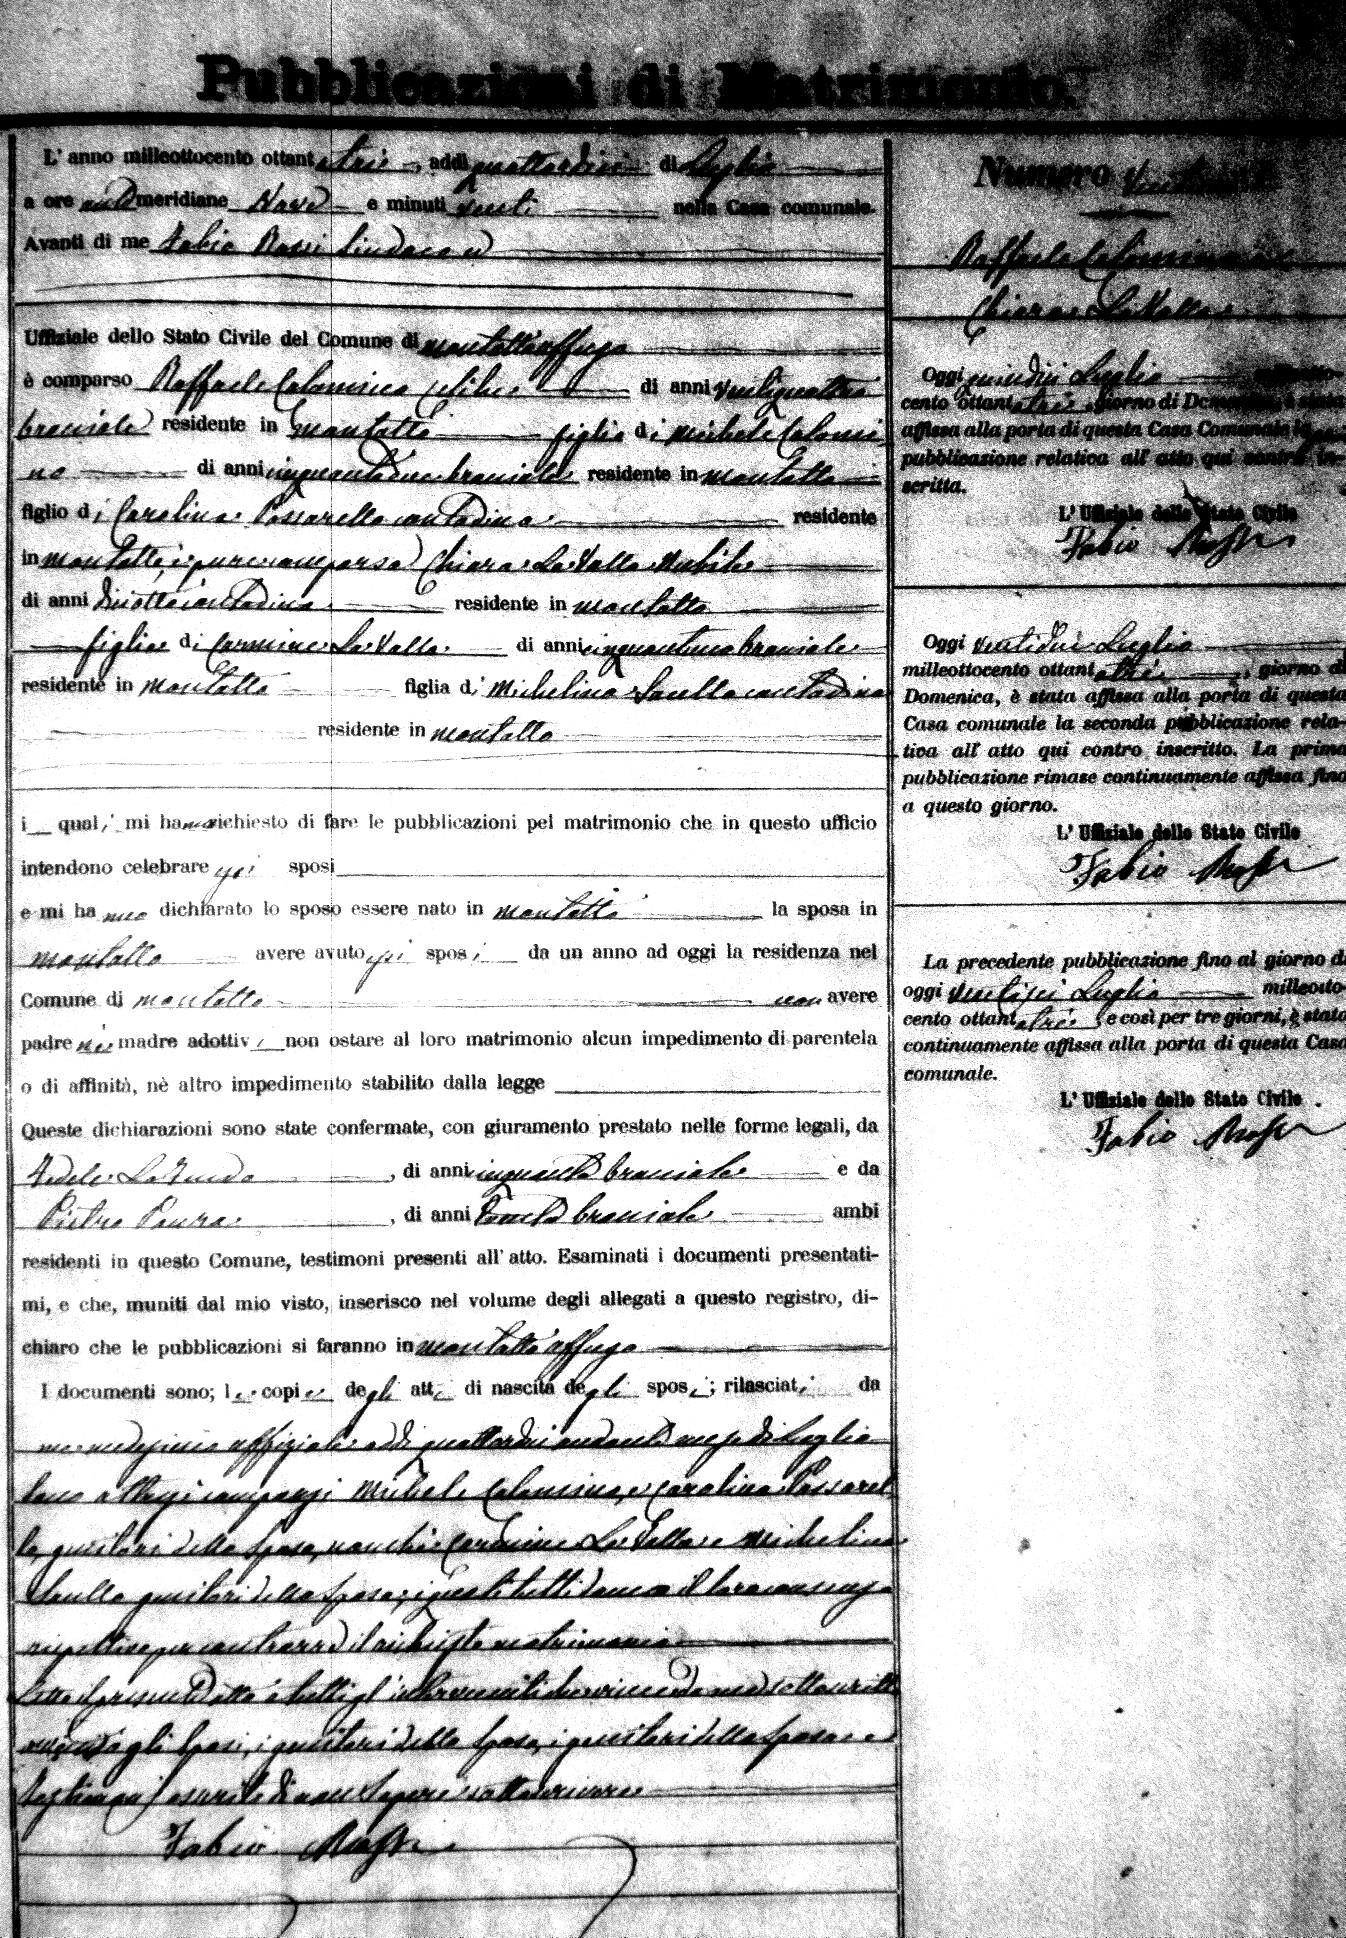 Pubblicazioni di Matrimonio.
L' anno milleottocento ottantatrè, addì quattordici di Luglio
a ore anti meridiane Nove e minuti venti nella Casa comunale.
Avanti di me Fabio Rossi Sindaco
Uffiziale dello Stato Civile del Comune di Montalto Uffugo
è comparso Raffaele Calomino celibe di anni ventiquattro
bracciale residente in Montalto figlio di Michele Calomi
no di anni cinquantadue bracciale residente in Montalto
figlio di Carolina Passarello contadina residente
in Montalto, è pure comparsa Chiara La Valle Nubile
di anni diciotto contadina residente in Montalto
figlia di Carmine La Valle di anni cinquantuno bracciale
residente in Montalto figlia di Michelina contadina
residente in Montalto
i quali mi hanno richiesto di fare le pubblicazioni pel matrimonio che in questo ufficio
intendono celebrare gli sposi
e mi hanno dichiarato lo sposo essere nato in Montalto la sposa in
Montalto avere avuto gli sposi da un anno ad oggi la residenza nel
Comune di Montalto non avere
padre nè madre adottivi non ostare al loro matrimonio alcun impedimento di parentela
o di affinità, nè altro impedimento stabilito dalla legge
Queste dichiarazioni sono state confermate, con giuramento prestato nelle forme legali, da
Fedele di anni cinquanta bracciale e da
Pietro , di anni trenta bracciale ambi
residenti in questo Comune, testimoni presenti all' atto. Esaminati i documenti presentati-
mi, e che, muniti dal mio visto, inserisco nel volume degli allegati a questo registro, di-
chiaro che le pubblicazioni si faranno in Montalto Uffugo
I documenti sono; le copie degli atti di nascita degli sposi; rilasciati da
me medesimo uffiziale addì quattordici andante mese di Luglio
Sono altresì comparsi Michele Calomino, e Carolina Passarel
lo, genitori dello sposo, nonchè Carmine La Valle e Michelina
genitori della sposa, i quali tutti danno il loro consenso
rispettivo per contrarre il richiesto matrimonio
Letto il presente atto a tutti gl' intervenuti viene da me sottoscritto
gli sposi, i genitori dello sposo, i genitori della sposa e i
testimoni asserito di non sapere sottoscrivere
Fabio Rossi
Numero
Raffaele Calomino e
Chiara La Valle
Oggi quindici Luglio milleotto-
cento ottantatrè, giorno di Domenica, è stata
affissa alla porta di questa Casa Comunale la
pubblicazione relativa all' atto qui contro in-
scritta.
L' Uffiziale dello Stato Civile
Fabio Rossi
Oggi ventidue Luglio
milleottocento ottantatrè, giorno di
Domenica, è stata affissa alla porta di questa
Casa comunale la seconda pubblicazione rela-
tiva all' atto qui contro inscritto. La prima
pubblicazione rimase continuamente affissa fino
a questo giorno.
L' Uffiziale dello Stato Civile
Fabio Rossi
La precedente pubblicazione fino al giorno di
oggi ventisei Luglio milleotto-
cento ottantatrè e così per tre giorni, è stata
continuamente affissa alla porta di questa Casa
comunale.
L' Uffiziale dello Stato Civile
Fabio Rossi